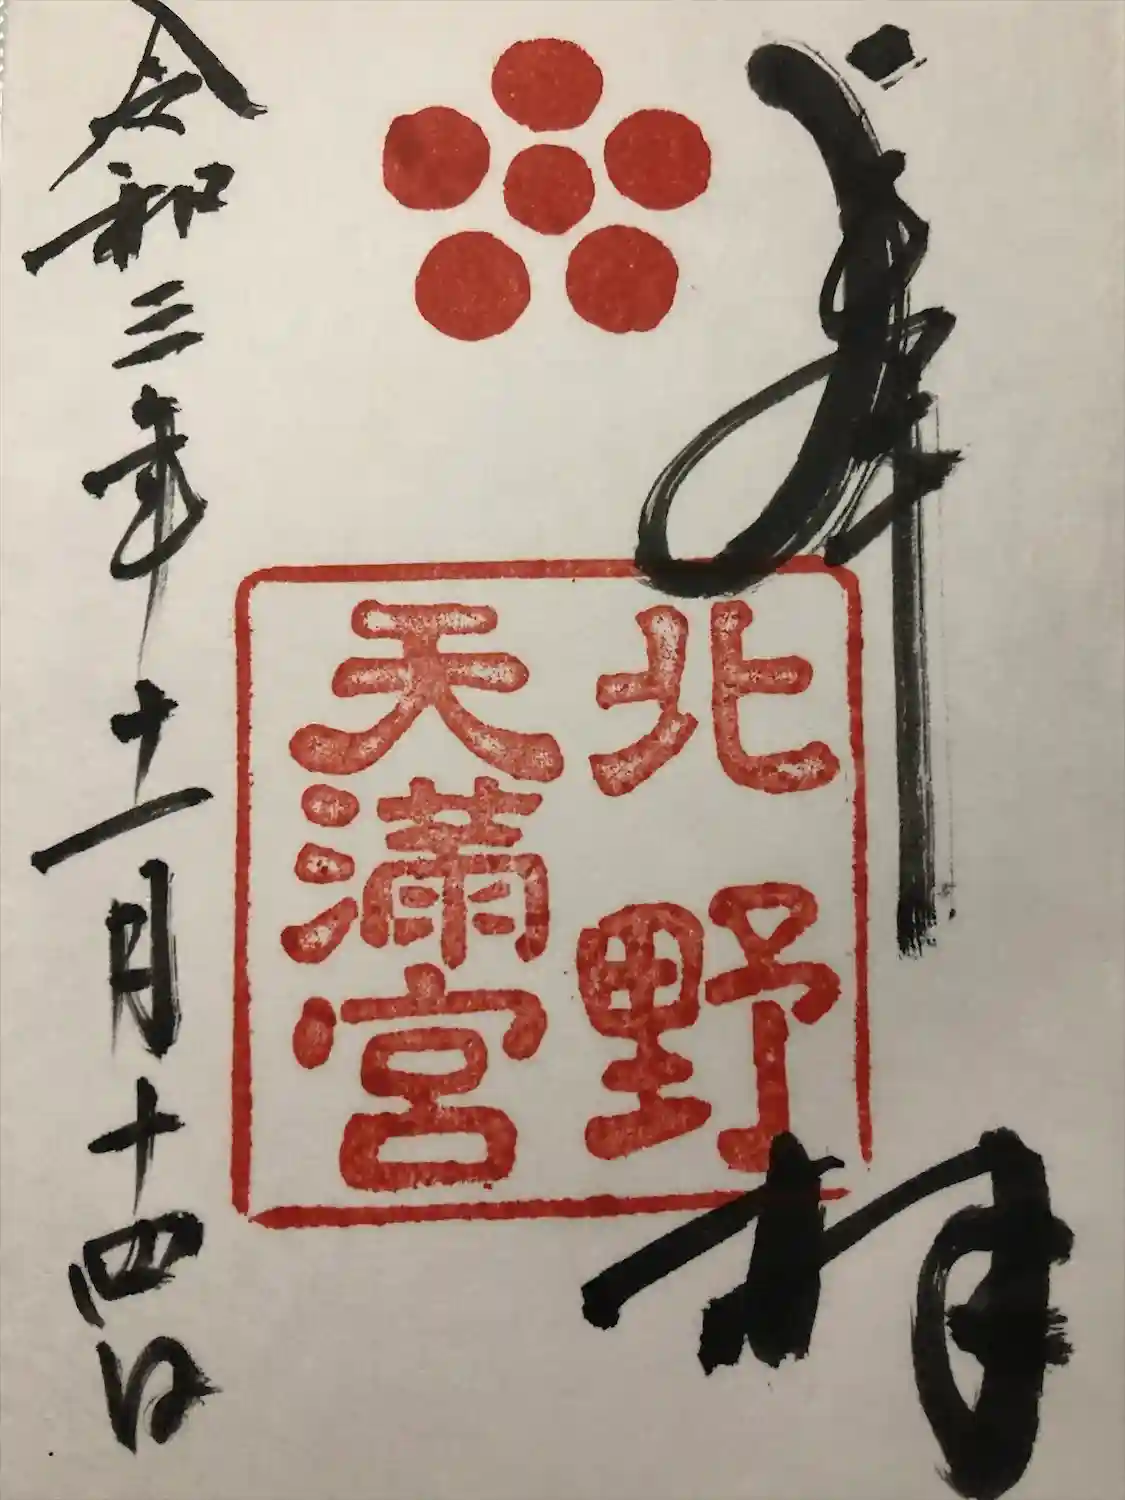 奉拝
北野
天満宮
令和三年十一月十四日